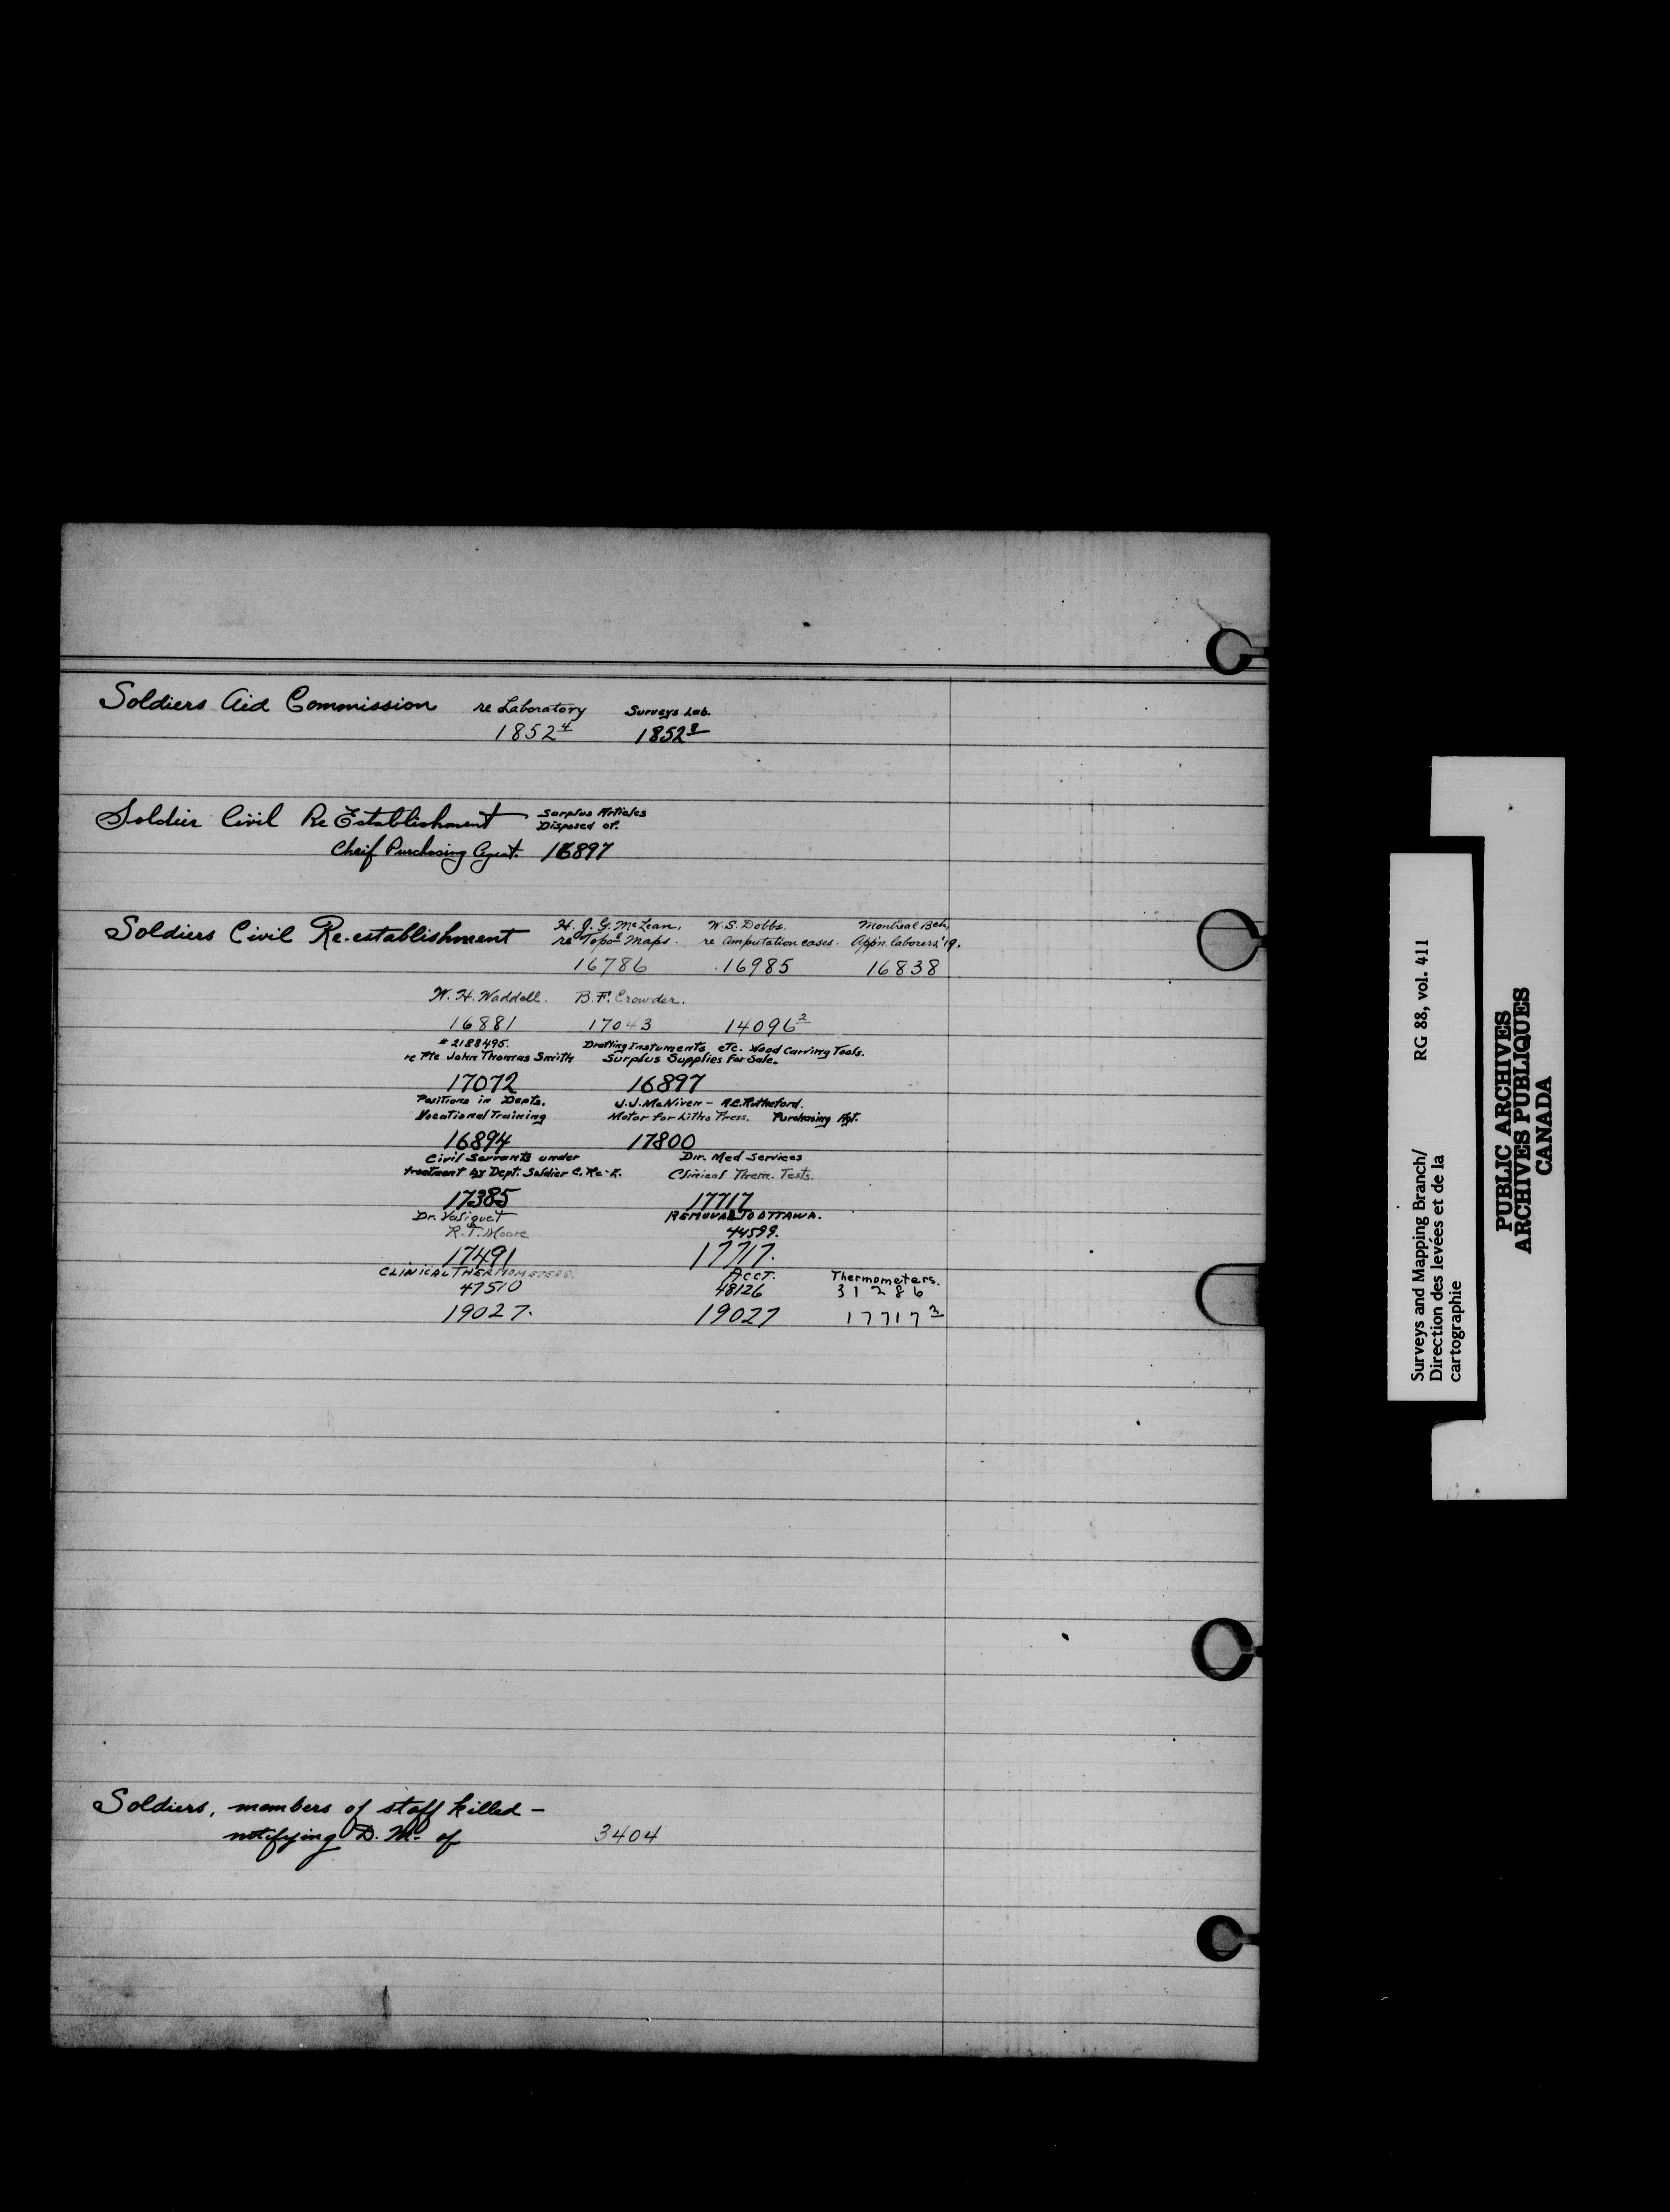 Soldiers Aid Commission re Laboratory Surveys Lab.
1852 4 1852 8
Soldier Civil Re Establishment Surplus Articles
Disposed of.
Cheif Purchasing Agent. 16897
Soldiers Civil Re-establishment H. J. G. McLean, W. S. Dobbs. Montreal Bch,
re Topo'l Maps. re Amputation cases. App'n. laborers '19.
16786 16985 16838
W. H. Waddell. B. F. Crowder.
16881 17043 14096 2
# 2188495. Drafting Instuments, etc. Wood Carving Tools.
re Pte John Thomas Smith Surplus Supplies For Sale.
17072 16897
Positions in Depts. J. J. McNiven - R.C. Rutherford.
Vocational Training Motor for Litho Press. Purchasing Agt.
16894 17800
Civil Servants under Dir. Med Services
treatment by Dept. Soldier C. Re-E. Clinical Therm. Tests.
17385 17717
Dr. REMOVAL TO OTTAWA.
R. T. Moore 44599.
17491 17717.
CLINICAL THERMOMETERS. Acct. Thermometers.
47510 48126 31286
19027. 19027 17717 3
Soldiers, members of staff killed -
notifying D. M. of 3404
Surveys and Mapping Branch/ RG 88, vol. 411
Direction des levées et de la
cartographie
PUBLIC ARCHIVES
ARCHIVES PUBLIQUES
CANADA